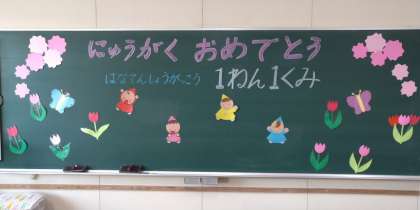 にゅうがく おめでとう
はなてんしょうがっこう 1ねん1くみ